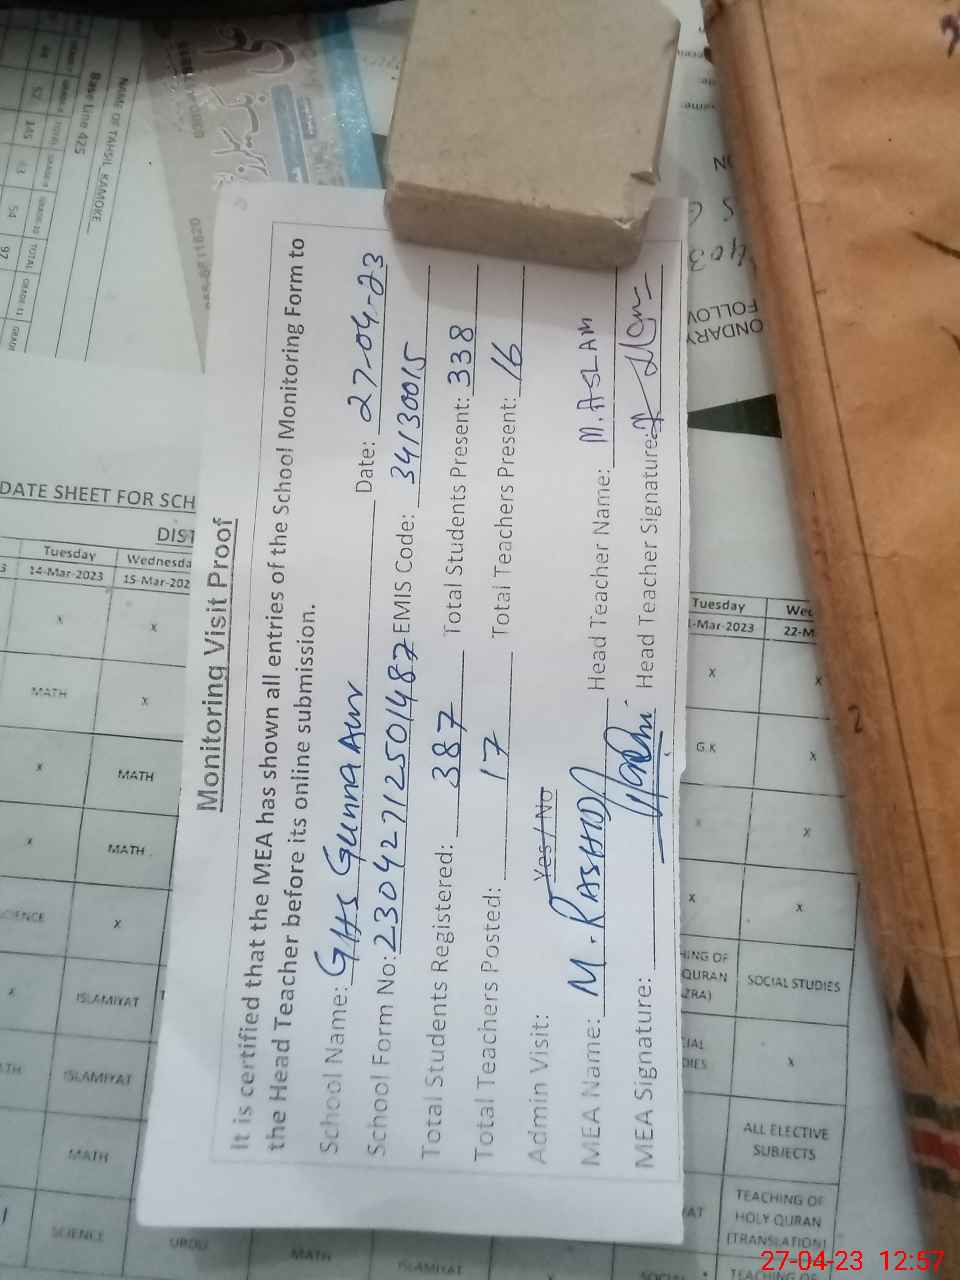 Monitoring Visit Proof
It is certified that the MEA has shown all entries of the School Monitoring Form to
the Head Teacher before its online submission.
School Name: GHS Gunna Aur Date: 27-04-23
School Form No: 23042712501487 EMIS Code: 34130015
Total Students Registered: 387 Total Students Present: 338
Total Teachers Posted: 17 Total Teachers Present: 16
Admin Visit: Yes / No
MEA Name: M. RASHID Head Teacher Name: M. ASLAM
MEA Signature: Head Teacher Signature:
NAME OF TAHSIL KAMOKE
Base Line 425
DATE SHEET FOR SCH
DIST
Tuesday Wednesda
14-Mar-2023 15-Mar-202
x x
MATH x
x MATH
x MATH
SCIENCE x
x ISLAMIYAT
ISLAMIYAT
MATH
SCIENCE URDU MATH ISLAMIYAT x
ONDARY
FOLLOV
Tuesday Wed
-Mar-2023 22-M
x x
G.K x
x x
x x
HING OF
QURAN SOCIAL STUDIES
ZRA)
IAL
DIES x
ALL ELECTIVE
SUBJECTS
AT TEACHING OF
HOLY QURAN
(TRANSLATION)
SOCIAL TEACHING OF
27-04-23 12:57